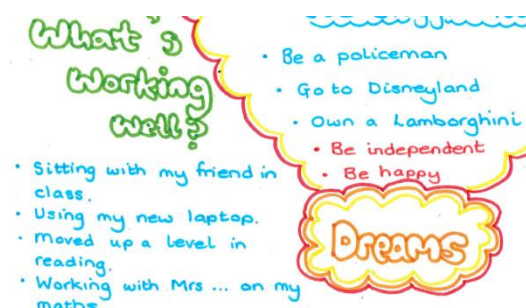 What's
Working
Well?
• Sitting with my friend in
class.
• Using my new laptop.
• Moved up a level in
reading.
• Working with Mrs ... on my
maths
• Be a policeman
• Go to Disneyland
• Own a Lamborghini
• Be independent
• Be happy
Dreams